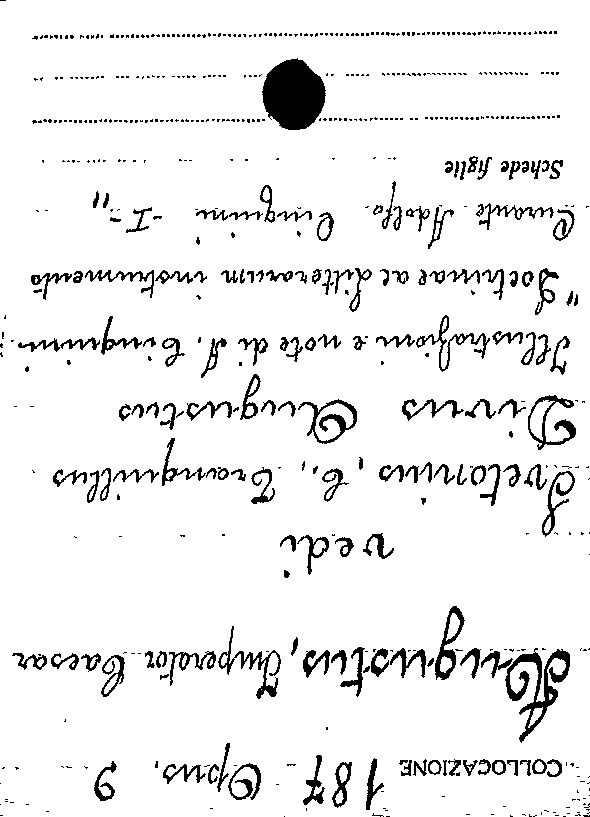 COLLOCAZIONE 187 Opus. 9
Augustus, Imperator Caesar
vedi
Svetonius, C., Tranquillus
Divus Augustus
Illustrazioni e note di A. Cinquini.
"Doctrinae ac litterarum instrumento
Curante Adolfo Cinquini - I-"
Schede figlie